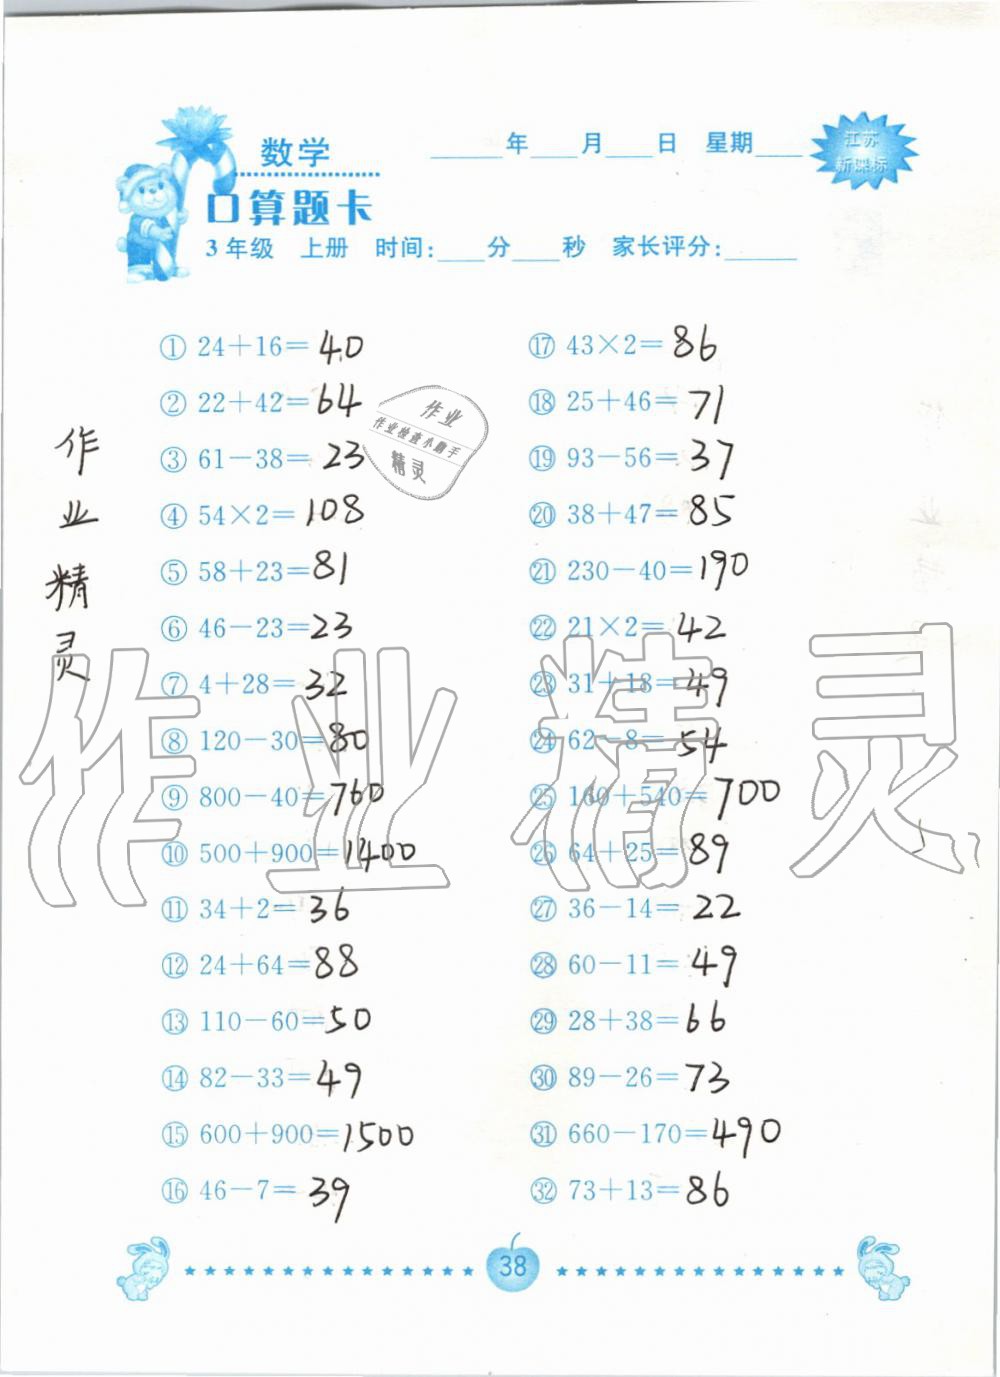 数学
____年____月____日 星期____
江苏
新课标
口算题卡
3年级 上册 时间:____分____秒 家长评分:____
① 24+16=40
② 22+42=64
③ 61-38=23
④ 54×2=108
⑤ 58+23=81
⑥ 46-23=23
⑦ 4+28=32
⑧ 120-30=80
⑨ 800-40=760
⑩ 500+900=1400
⑪ 34+2=36
⑫ 24+64=88
⑬ 110-60=50
⑭ 82-33=49
⑮ 600+900=1500
⑯ 46-7=39
⑰ 43×2=86
⑱ 25+46=71
⑲ 93-56=37
⑳ 38+47=85
㉑ 230-40=190
㉒ 21×2=42
㉓ 31+18=49
㉔ 62-8=54
㉕ 160+540=700
㉖ 64+25=89
㉗ 36-14=22
㉘ 60-11=49
㉙ 28+38=66
㉚ 89-26=73
㉛ 660-170=490
㉜ 73+13=86
作业精灵
作业
作业检查小助手
精灵
作业精灵
38